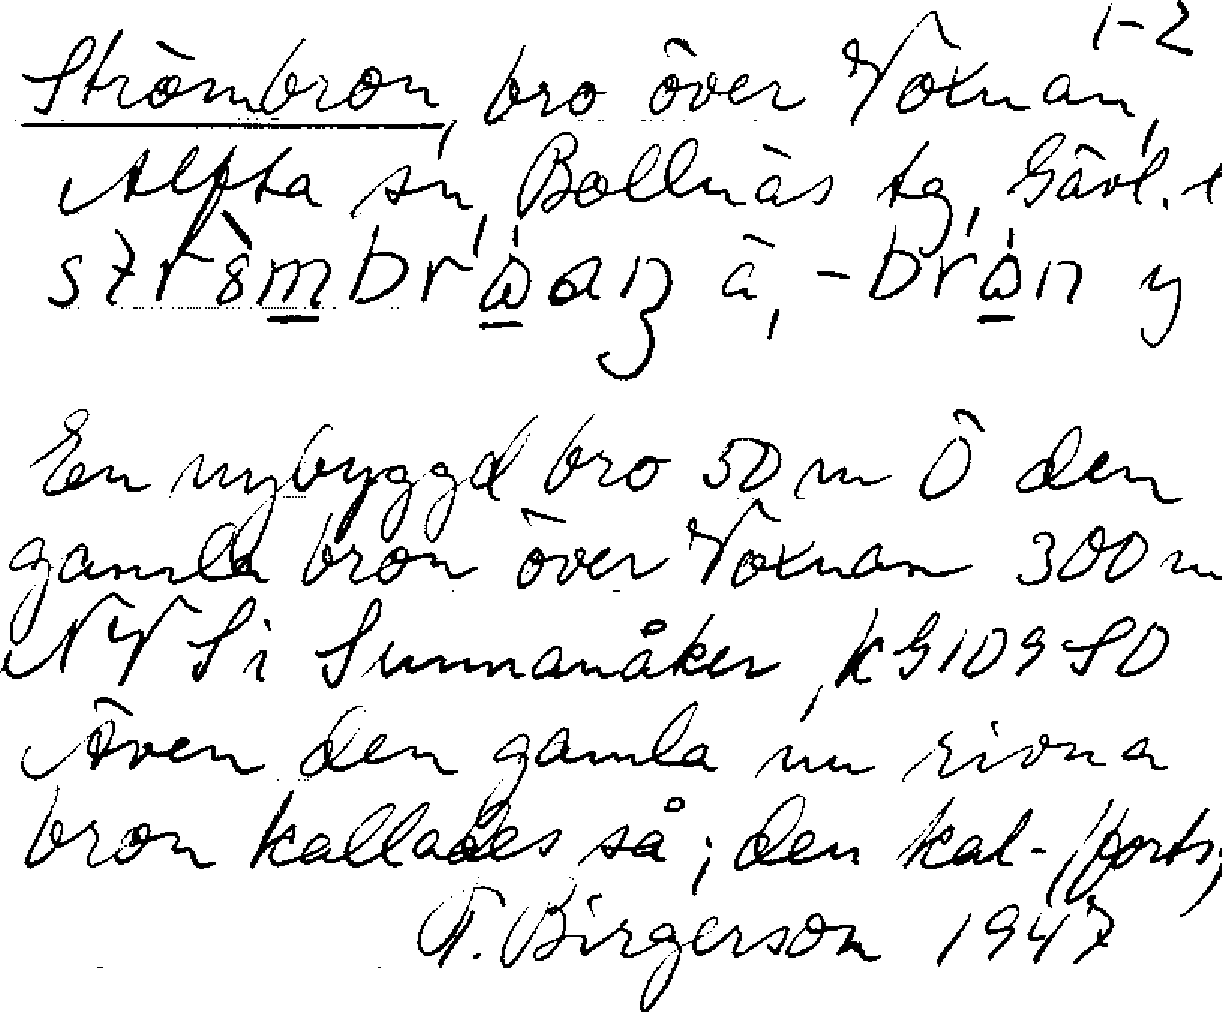 1-2
Strömbron, bro över Voxnan,
Alfta sn, Bollnäs tg, Gävl. l
En nybyggd bro 50 m Ö den
gamla bron över Voxnan 300 m
NV S i Sunnanåker, k G 109 SO
Även den gamla nu rivna
bron kallades så; den kal- (forts,
T. Birgerson 1947